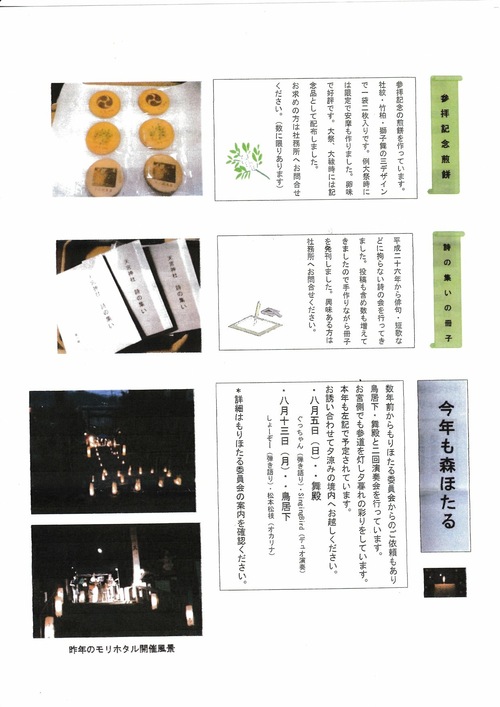 参拝記念煎餅
参拝記念の煎餅を作っています。
社紋・竹柏・獅子舞の三デザイン
で一袋二枚入りです。例大祭時に
は限定で安摩も作りました。卵味
で好評です。大祭、大祓時には記
念品として配布しました。
お求めの方は社務所へお問合せ
ください。（数に限りあります）
詩の集いの冊子
平成二十六年から俳句・短歌な
どに拘らない詩の会を行ってき
ました。投稿も含め数も増えて
きましたので手作りながら冊子
を発刊しました。興味ある方は
社務所へお問合せください。
天宮神社 詩の集い
天宮神社 詩の集い
今年も森ほたる
数年前からもりほたる委員会からのご依頼もあり
鳥居下・舞殿と二回演奏会を行っています。
お宮側でも参道を灯し夕暮れの彩りをしています。
本年も左記で予定されています。
お誘い合わせて夕涼みの境内へお越しください。
・八月五日（日）・・舞殿
ぐっちゃん（弾き語り）・SingingBird（デュオ演奏）
・八月十三日（月）・・鳥居下
しょーぞー（弾き語り）・松本松枝（オカリナ）
＊詳細はもりほたる委員会の案内を確認ください。
昨年のモリホタル開催風景